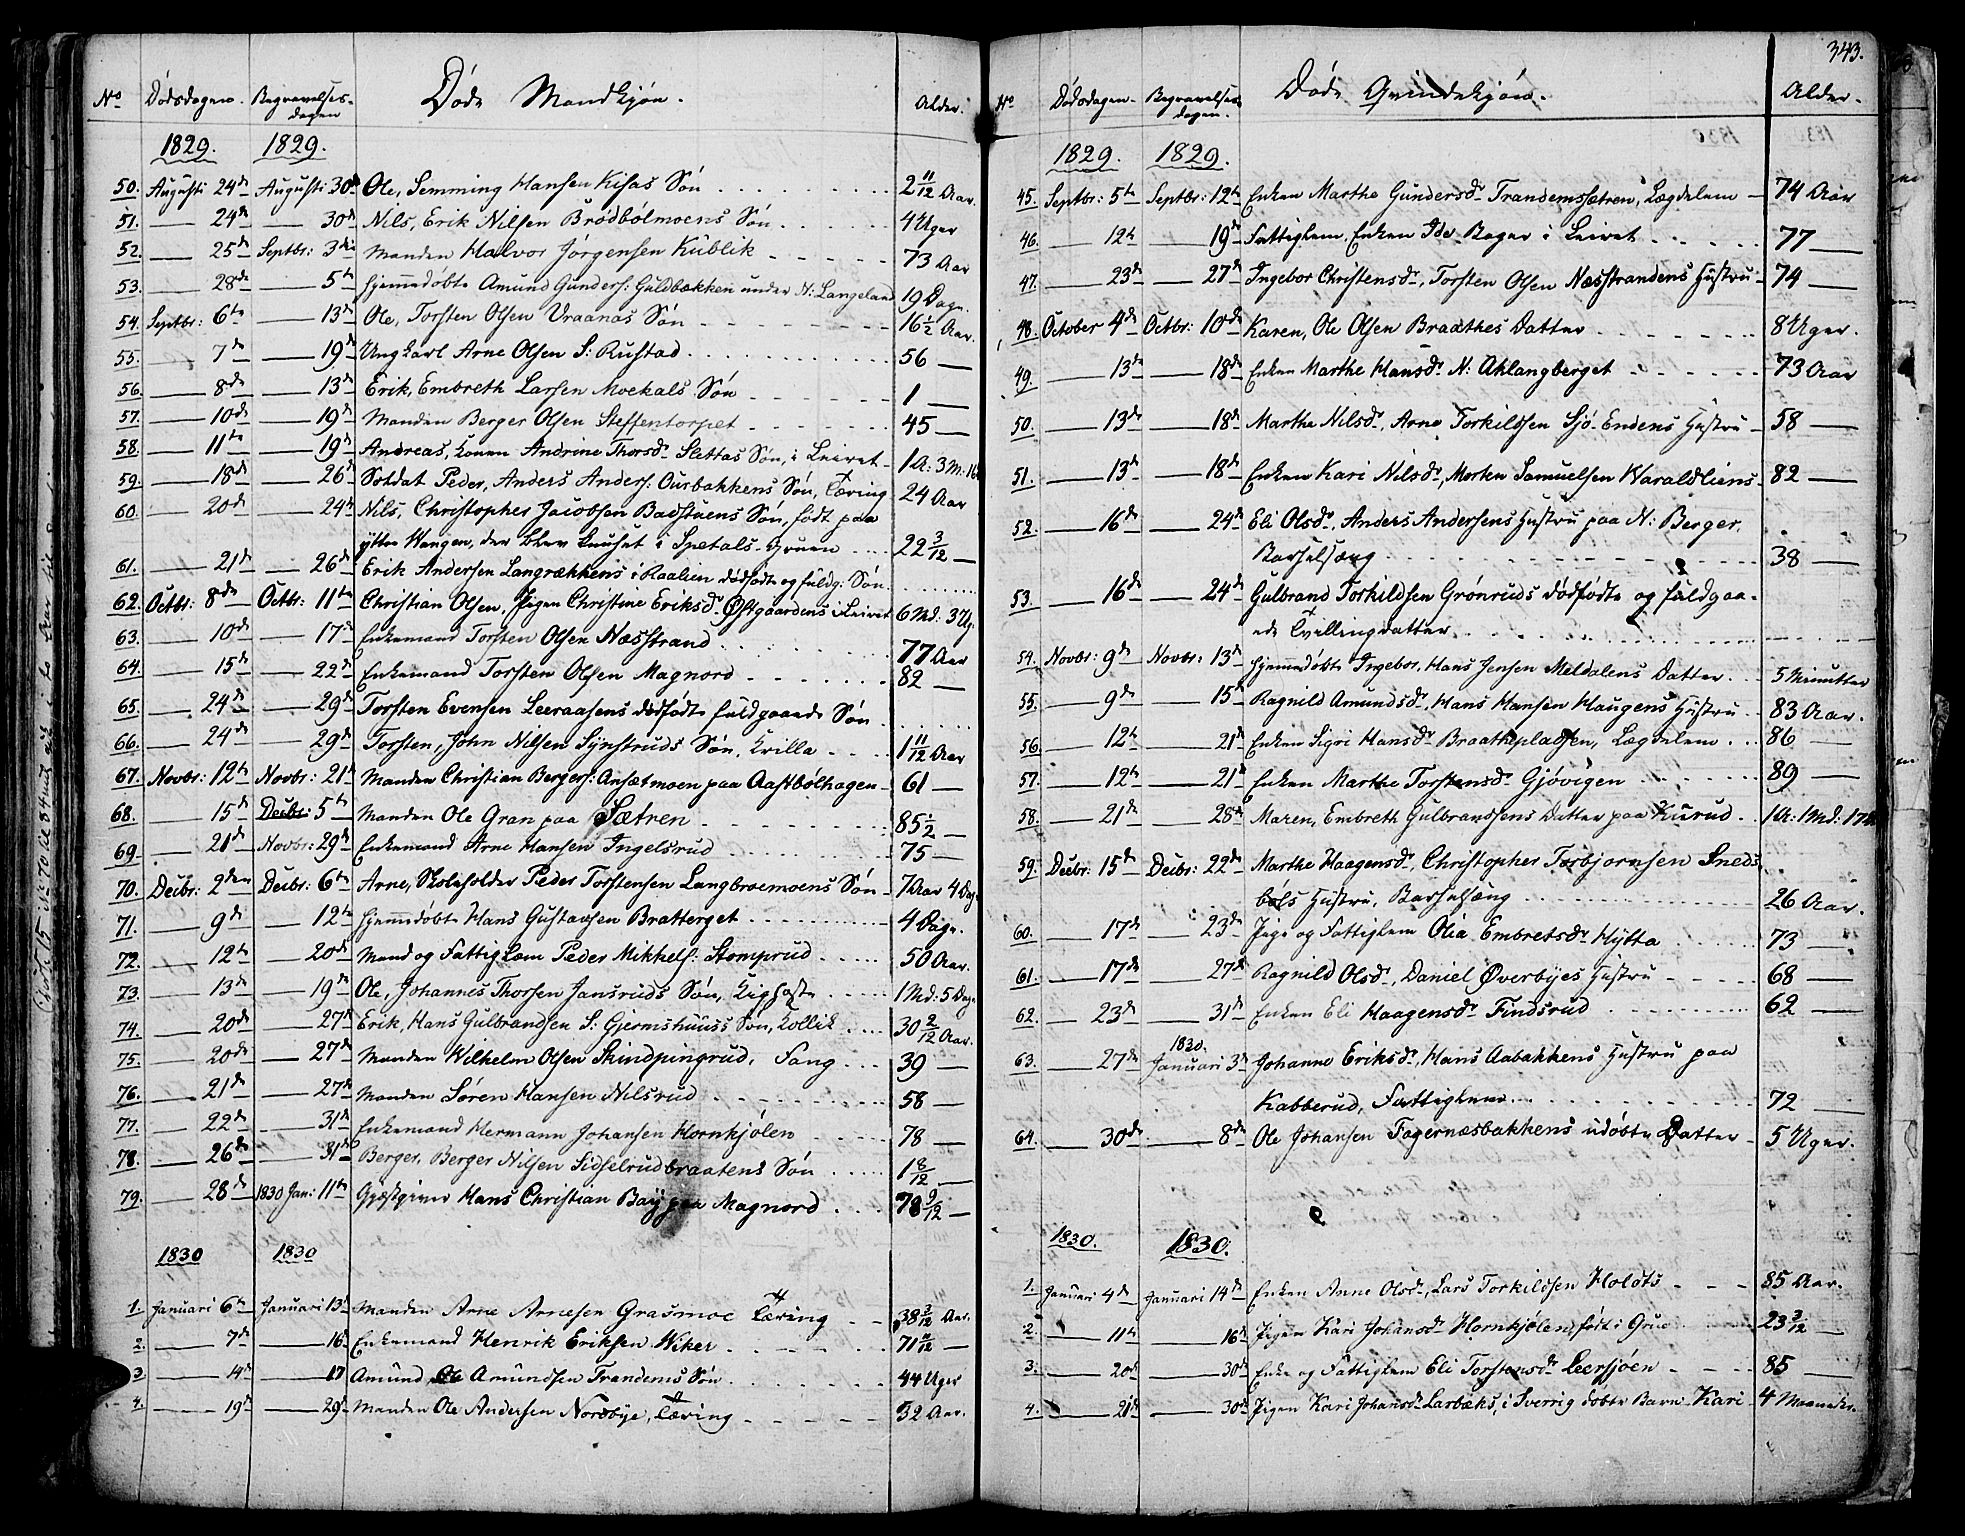 No Dødsdagen. Begravelses-dagen Døde Mandkjøn. Alder.
1829. 1829.
50. Augusti 24de Augusti 30de Ole, Semming Hansen Kisas Søn 2 11/12 Aar.
51. 24de 30de Nils, Erik Nilsen Brødbølmoens Søn 4 Uger
52. 25de Septbr: 3die Manden Halvor Jørgensen Kublik 73 Aar
53. 28de 5te hjemmedøbte Amund Gunders: Guldbækken under N: Langeland 19 Dage.
54. Septbr: 6te 13de Ole, Torsten Olsen Vraanas Søn 16 1/2 Aar.
55. 7de 19de Ungkarl Arne Olsen S: Rustad 56
56. 8de 13de Erik, Embreth Larsen Moekals Søn 1
57. 10de 19de Manden Berger Olsen Steffentorpet 45
58. 11te 19de Andreas, Konen Andrine Thorsdr Slettas Søn, i Leiret 1 A: 3 M: 16
59. 18de 26de Soldat Peder, Anders Anders: Ousbakkens Søn, Tæring 24 Aar
60. 20de 24de Nils, Christopher Jacobsen Badstuens Søn, født paa
ytter Wangen, der blev knuset i Spetals-Gruen 22 3/12
61. 21de 26de Erik Andersen Langrækkens i Raalien dødfødte og fuldg: Søn
62. Octbr: 8de Octbr: 11te Christian Olsen, Pigen Christine Eriksdr Østgaardens i Leiret 6 Md: 3 Ug.
63. 10de 17de Enkemand Torsten Olsen Næsstrand 77 Aar
64. 15de 22de Enkemand Torsten Olsen Magnord 82
65. 24de 29de Torsten Evensen Leeraasens dødfødte fuldgaaede Søn
66. 24de 29de Torsten, John Nilsen Synstruds Søn, Krilla 1 11/12 Aar
67. Novbr: 12te Novbr: 21de Manden Christian Bergers: Ansætmoen paa Aastbølhagen 61
68. 15de Decbr: 5te Manden Ole Gran paa Sætren 85 1/2
69. 21de Novbr: 29de Enkemand Arne Hansen Ingelsrud 75
70. Decbr: 2den Decbr: 6te Arne, Skoleholder Peder Torstensen Langbroemoens Søn 7 Aar 4 Dag
71. 9de 12te hjemmedøbte Hans Gustavsen Bratterget 4 Dage.
72. 12te 20de Mand og Fattiglem Peder Mikkels: Stomprud 50 Aar.
73. 13de 19de Ole, Johannes Thorsen Jansruds Søn, Kighoste 1 Md: 5 Dage
74. 20de 27de Erik, Hans Gulbrandsen S: Gjermshuuss Søn, Kollik 30 2/12 Aar.
75. 20de 27de Manden Wilhelm Olsen Skindpungrud, Fang 39
76. 21de 27de Manden Søren Hansen Nilsrud 58
77. 22de 31de Enkemand Hermann Johansen Hornkjølen 78
78. 26de 31de Berger, Berger Nilsen Sidselrudbraatens Søn 1 8/12
79. 28de 1830 Jan: 11te Gjæstgiver Hans Christian Bay paa Magnord 78 9/12
1830 1830
1. Januari 6te Januari 13de Manden Arne Arnesen Grasmoe Tæring 38 3/12 Aar.
2. 7de 16de Enkemand Henrik Eriksen Wiker 71 11/12
3. 14de 17 Amund, Ole Amundsen Trandems Søn 44 Uger
4. 19de 29de Manden Ole Andersen Nordbye, Tæring 32 Aar.
343.
No Dødsdagen. Begravelses-dagen. Døde Qvindekjøn. Alder.
1829. 1829.
45. Septbr: 5te Septbr: 12te Enken Marthe Gundersdr Trandemssætren, Lægdelem 74 Aar
46. 12te 19de Fattiglem, Enken Ide Bager i Leiret 77
47. 23de 27de Ingebor Christensdr, Torsten Olsen Næsstrandens Hustru 74
48. October 4de Octbr: 10de Karen, Ole Olsen Braathes Datter 8 Uger.
49. 13de 18de Enken Marthe Hansdr N: Aklangberget 73 Aar
50. 13de 18de Marthe Nilsdr, Arne Torkilssen Sjø-Endens Hustru 58
51. 13de 18de Enken Kari Nilsdr, Morten Samuelsen Haraldliens 82
52. 16de 24de Eli Olsdr, Anders Andersens Hustru paa N: Berger,
Barselsæng 38
53. 16de 24de Gulbrand Torkildsen Grønruds dødfødte og fuldgaa-
ede Tvillingdatter
54. Novbr: 9de Novbr: 13de hjemmedøbte Ingebor, Hans Jensen Meldalens Datter 5 Minutter
55. 9de 15de Ragnild Amundsdr, Hans Hansen Haugens Hustru 83 Aar.
56. 12te 21de Enken Sigri Hansdr Braathepladsen, Lægdelem 86
57. 12te 21de Enken Marthe Torstensdr Gjøvigen 89
58. 21de 28de Maren, Embreth Gulbrandsens Datter paa Kurud 1 A: 1 Md: 17
59. Decbr: 15de Decbr: 22de Marthe Haagensdr, Christopher Torbjørnsen Sneds-
bøls Hustru, Barselsæng 26 Aar.
60. 17de 23de Pige og Fattiglem Olia Embretsdr Hytta 73
61. 17de 27de Ragnild Olsdr, Daniel Øverbyes Hustru 68
62. 23de 31de Enken Eli Haagensdr Findsrud 62
63. 27de 1830. Januari 3de Johanne Eriksdr, Hans Aabakkens Hustru paa
Kabberud, Fattiglem 72
64. 30de 8de Ole Johansen Fagernæsbakkens udøbte Datter 5 Uger.
1830. 1830.
1. Januari 4de Januari 14de Enken Anne Olsdr, Lars Torkildsen Holots 85 Aar.
2. 11te 16de Pigen Kari Johansdr Hornkjølen, født i Grue 23 3/12
3. 20de 30de Enke og Fattiglem Eli Torstensdr Leersjøen 85
4. 21de 30de Pigen Kari Johansdr Larbæks, i Sverrig døbte Barn Kari 4 Maaneder.